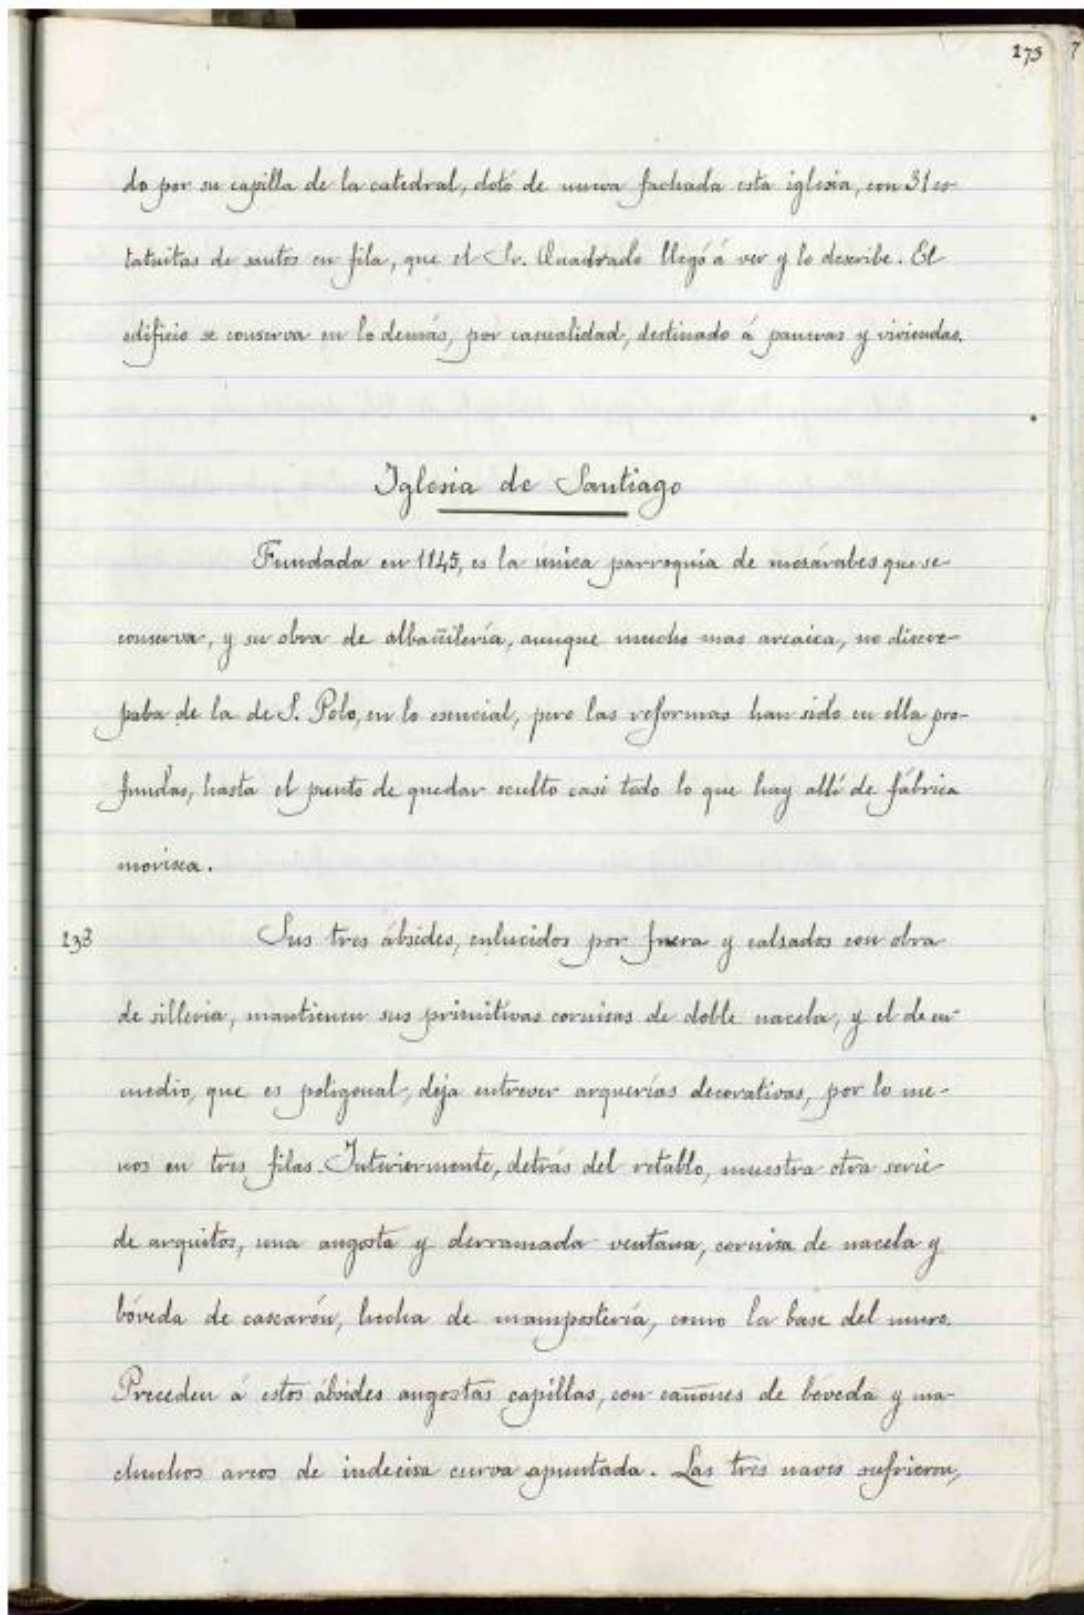 173
do por su capilla de la catedral, dotó de nueva fachada esta iglesia, con 31 es-
tatuitas de santos en fila, que el Sr. Quadrado llegó á ver y lo describe. El
edificio se conserva en lo demás, por casualidad, destinado á paneras y viviendas.
Iglesia de Santiago
Fundada en 1145, es la única parroquia de mozárabes que se
conserva, y su obra de albañilería, aunque mucho mas arcaica, no discre-
paba de la de S. Polo, en lo esencial, pero las reformas han sido en ella pro-
fundas, hasta el punto de quedar oculto casi todo lo que hay allí de fábrica
morisca.
138 Sus tres ábsides, enlucidos por fuera y calzados con obra
de silleria, mantienen sus primitivas cornisas de doble nacela, y el de en
medio, que es poligonal, deja entrever arquerías decorativas, por lo me-
nos en tres filas. Interiormente, detrás del retablo, muestra otra serie
de arquitos, una angosta y derramada ventana, cornisa de nacela y
bóveda de cascarón, hecha de mampostería, como la base del muro.
Preceden á estos ábsides angostas capillas, con cañones de bóveda y ma-
chuchos arcos de indecisa curva apuntada. Las tres naves sufrieron,